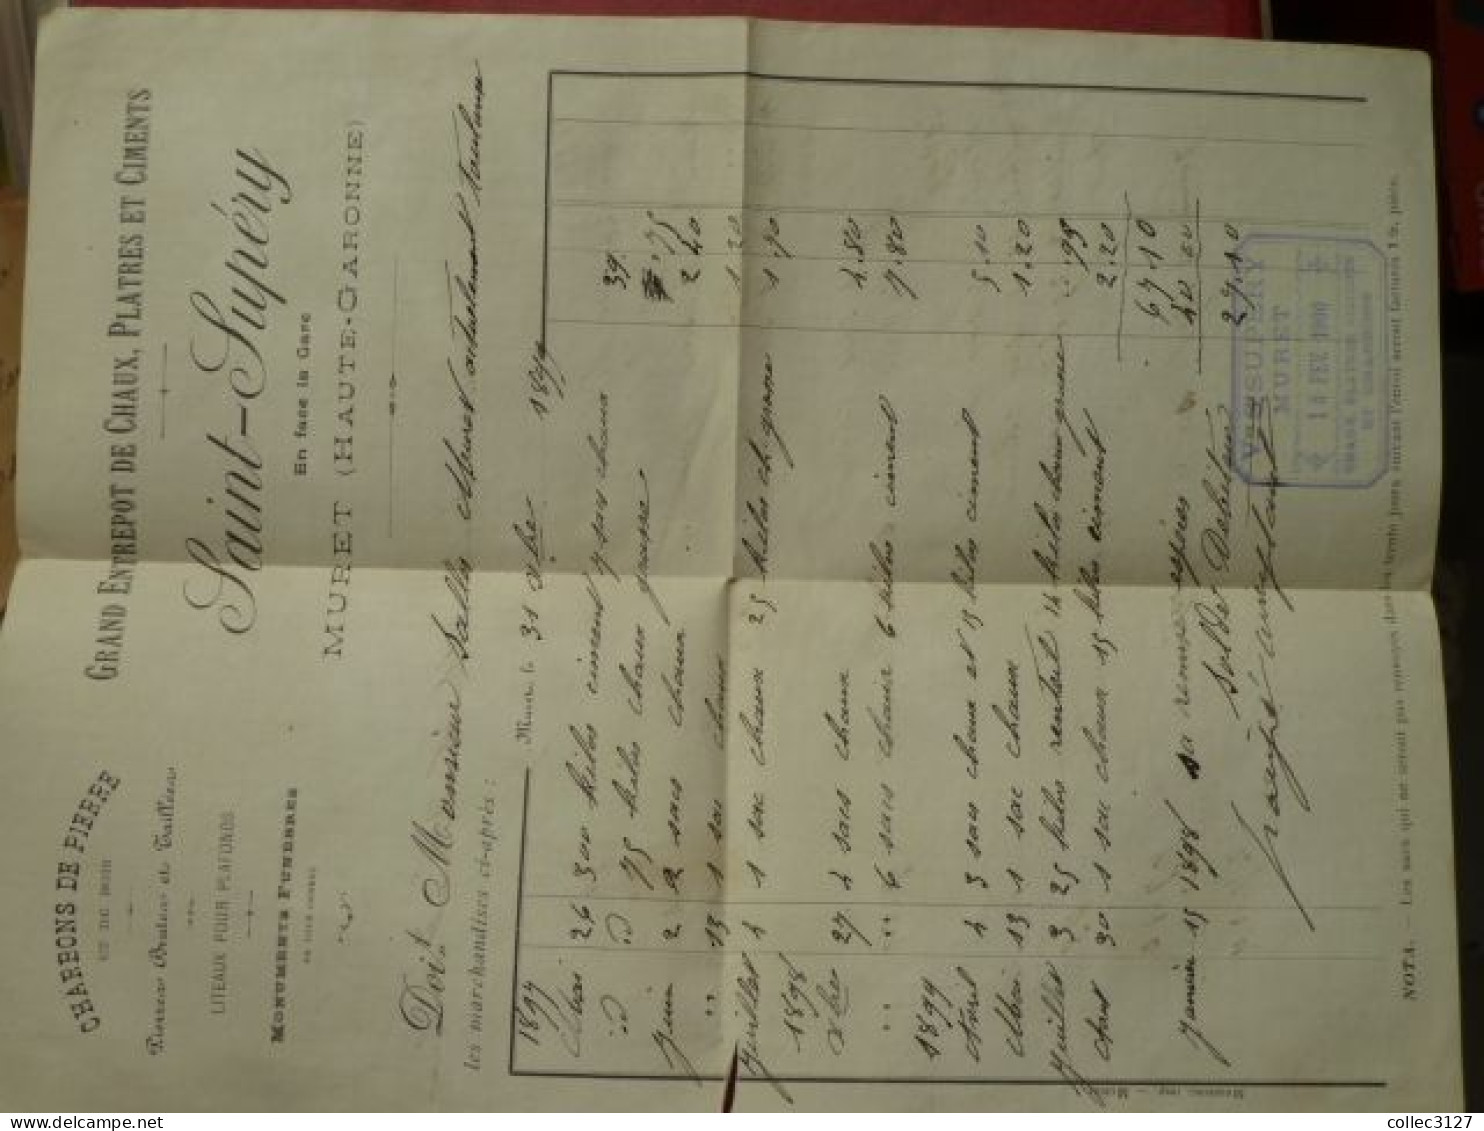 CHARBONS DE PIERRE
ET DE BOIS
Pierres Brutes et Taillées
LITEAUX POUR PLAFONDS
MONUMENTS FUNÈBRES
GRAND ENTREPOT DE CHAUX, PLATRES ET CIMENTS
Saint-Supéry
En face la Gare
MURET (HAUTE-GARONNE)
Doit Monsieur Salles
les marchandises ci-après :
Muret, le 31 Xbre 1899
1897
Mai 26 300 kilos ciment 7 sacs chaux 39.
id id 75 kilos chaux grasse .75
Juin 2 2 sacs chaux 2 40
" 13 1 sac chaux 1 20
Juillet 4 1 sac chaux 25 kilos ch. grasse 1.70
1898
Xbre 27 4 sacs chaux 4.80
" " 6 sacs chaux 6 kilos ciment 7.80
1899
Avril 4 3 sacs chaux et 15 kilos ciment 5.10
Mai 13 1 sac chaux 1.20
Juillet 3 25 kilos 14 kilos chaux grasse .95
30 1 sac chaux 15 kilos ciment 2.20
67.10
Janvier 15 1898 sa remise espèces 40 00
Solde Débiteur 27.10
Vve St SUPERY
MURET
14 FEV 1900
NOTA. — Les sacs qui ne seront pas renvoyés dans les quinze jours suivant l'envoi seront facturés 1 fr. pièce.
collec3127